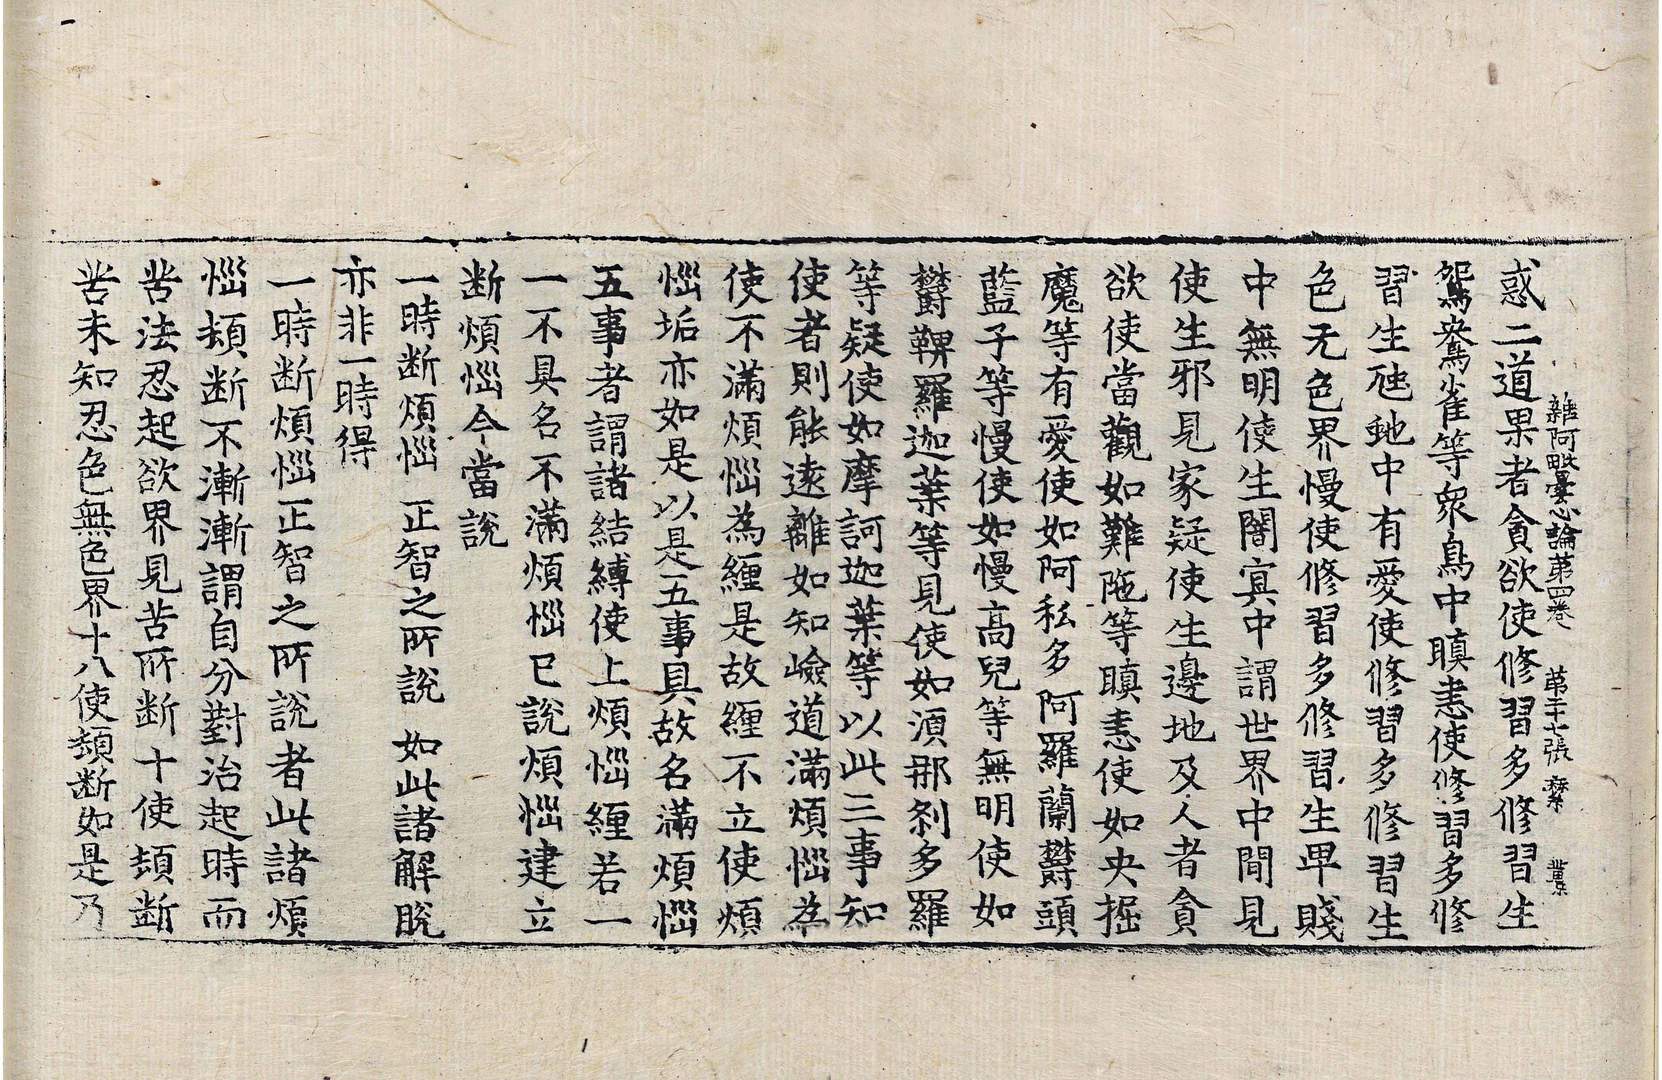 雜阿毗曇心論第四卷 第二十七張 𢡟
惑二道果者貪欲使修習多修習生
鴛鴦雀等衆鳥中瞋恚使修習多修
習生虵虺中有愛使修習多修習生
色无色界慢使修習多修習生卑賤
中無明使生闇冥中謂世界中間見
使生邪見家疑使生邊地及人者貪
欲使當觀如難陁等瞋恚使如央掘
魔等有愛使如阿私多阿羅蘭欝頭
藍子等慢使如慢高兒等無明使如
欝鞞羅迦葉等見使如須那刹多羅
等疑使如摩訶迦葉等以此三事知
使者則能遠離如知嶮道滿煩惱為
使不滿煩惱為纏是故纏不立使煩
惱垢亦如是以是五事具故名滿煩惱
五事者謂諸結縛使上煩惱纏若一
一不具名不滿煩惱已說煩惱建立
断煩惱今當說
一時断煩惱 正智之所說 如此諸解脫
亦非一時得
一時断煩惱正智之所說者此諸煩
惱頓断不漸漸謂自分對治起時而
苦法忍起欲界見苦所断十使頓断
苦未知忍色無色界十八使頓断如是乃